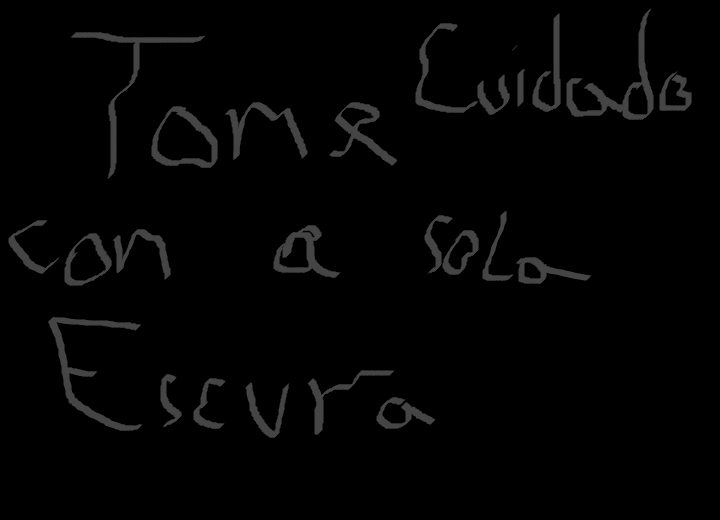 Tome Cuidado
con a sala
Escura